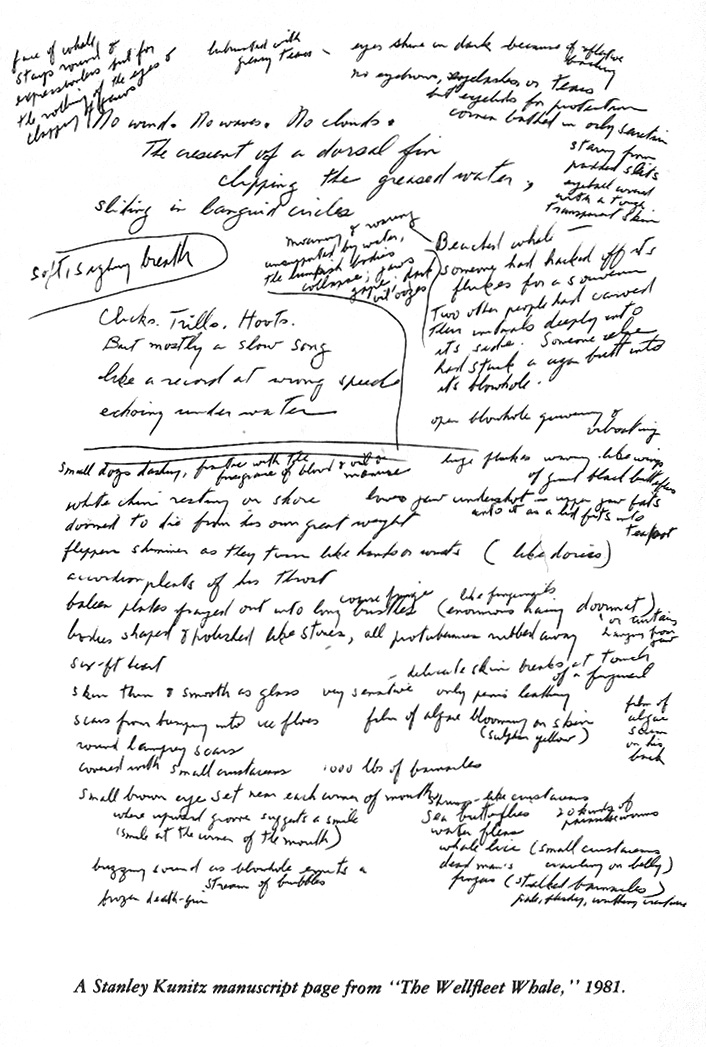 face of whale
stays round &
expressionless but for
the rolling of the eyes &
clapping of jaws
lubricated with
greasy tears —
eyes shine in dark because of reflective
backing
no eyebrows, eyelashes or tears
but eyelids for protection
cornea bathed in oily secretion
from
padded slits
eyeball covered
with a tough
transparent skin
No wind. No waves. No clouds.
The crescent of a dorsal fin
clipping the greased water,
sliding in languid circles
soft, sighing breath
moaning &
unsupported by water,
the lumpish bodies
collapse; jaws
gape,
oil oozes
Beached whale —
Someone had hacked off its
flukes for a souvenir
Two other people had carved
their initials deeply into
its side. Someone else
had stuck a cigar butt into
it's blowhole.
Clicks. Trills. Hoots.
But mostly a slow song
like a record at wrong speed
echoing under water
open blowhole quivering &
vibrating
small dogs dashing, frantic with the
fragrance of blood & oil &
manure
huge flukes waving like wings
of giant black butterflies
white chin resting on shore
lower jaw undershot — upper jaw fits
into it as a lid fits into
teapot
doomed to die from his own great weight
flippers shimmer as they turn like hands or
(like dories)
accordion pleats of his throat
baleen plates frayed out into long coarse fringe bristles
(enormous hairy doormat)
like fingernails
or curtains
hanging from
jaw
bodies shaped & polished like stones, all protuberances rubbed away
six-ft heart
— delicate skin breaks at touch
of a fingernail
skin thin & smooth as glass very sensitive only penis leathery
scars from bumping into ice floes
film of algae blooming on skin
(sulphur yellow)
film of
algae
scum
on his
back
round lamprey scars
covered with small crustaceans
1000 lbs of barnacles
small brown eye set near each corner of mouth
where upward groove suggests a smile
(smile at the corner of the mouth)
shrimp-like crustaceans
sea butterflies
20 kinds of
parasite worms
water fleas
whale lice (small crustaceans
crawling on belly)
dead man's
fingers (stalked barnacles)
pale, fleshy, creatures
buzzing sound as blowhole emits a
stream of bubbles
frozen death-grin
A Stanley Kunitz manuscript page from "The Wellfleet Whale," 1981.